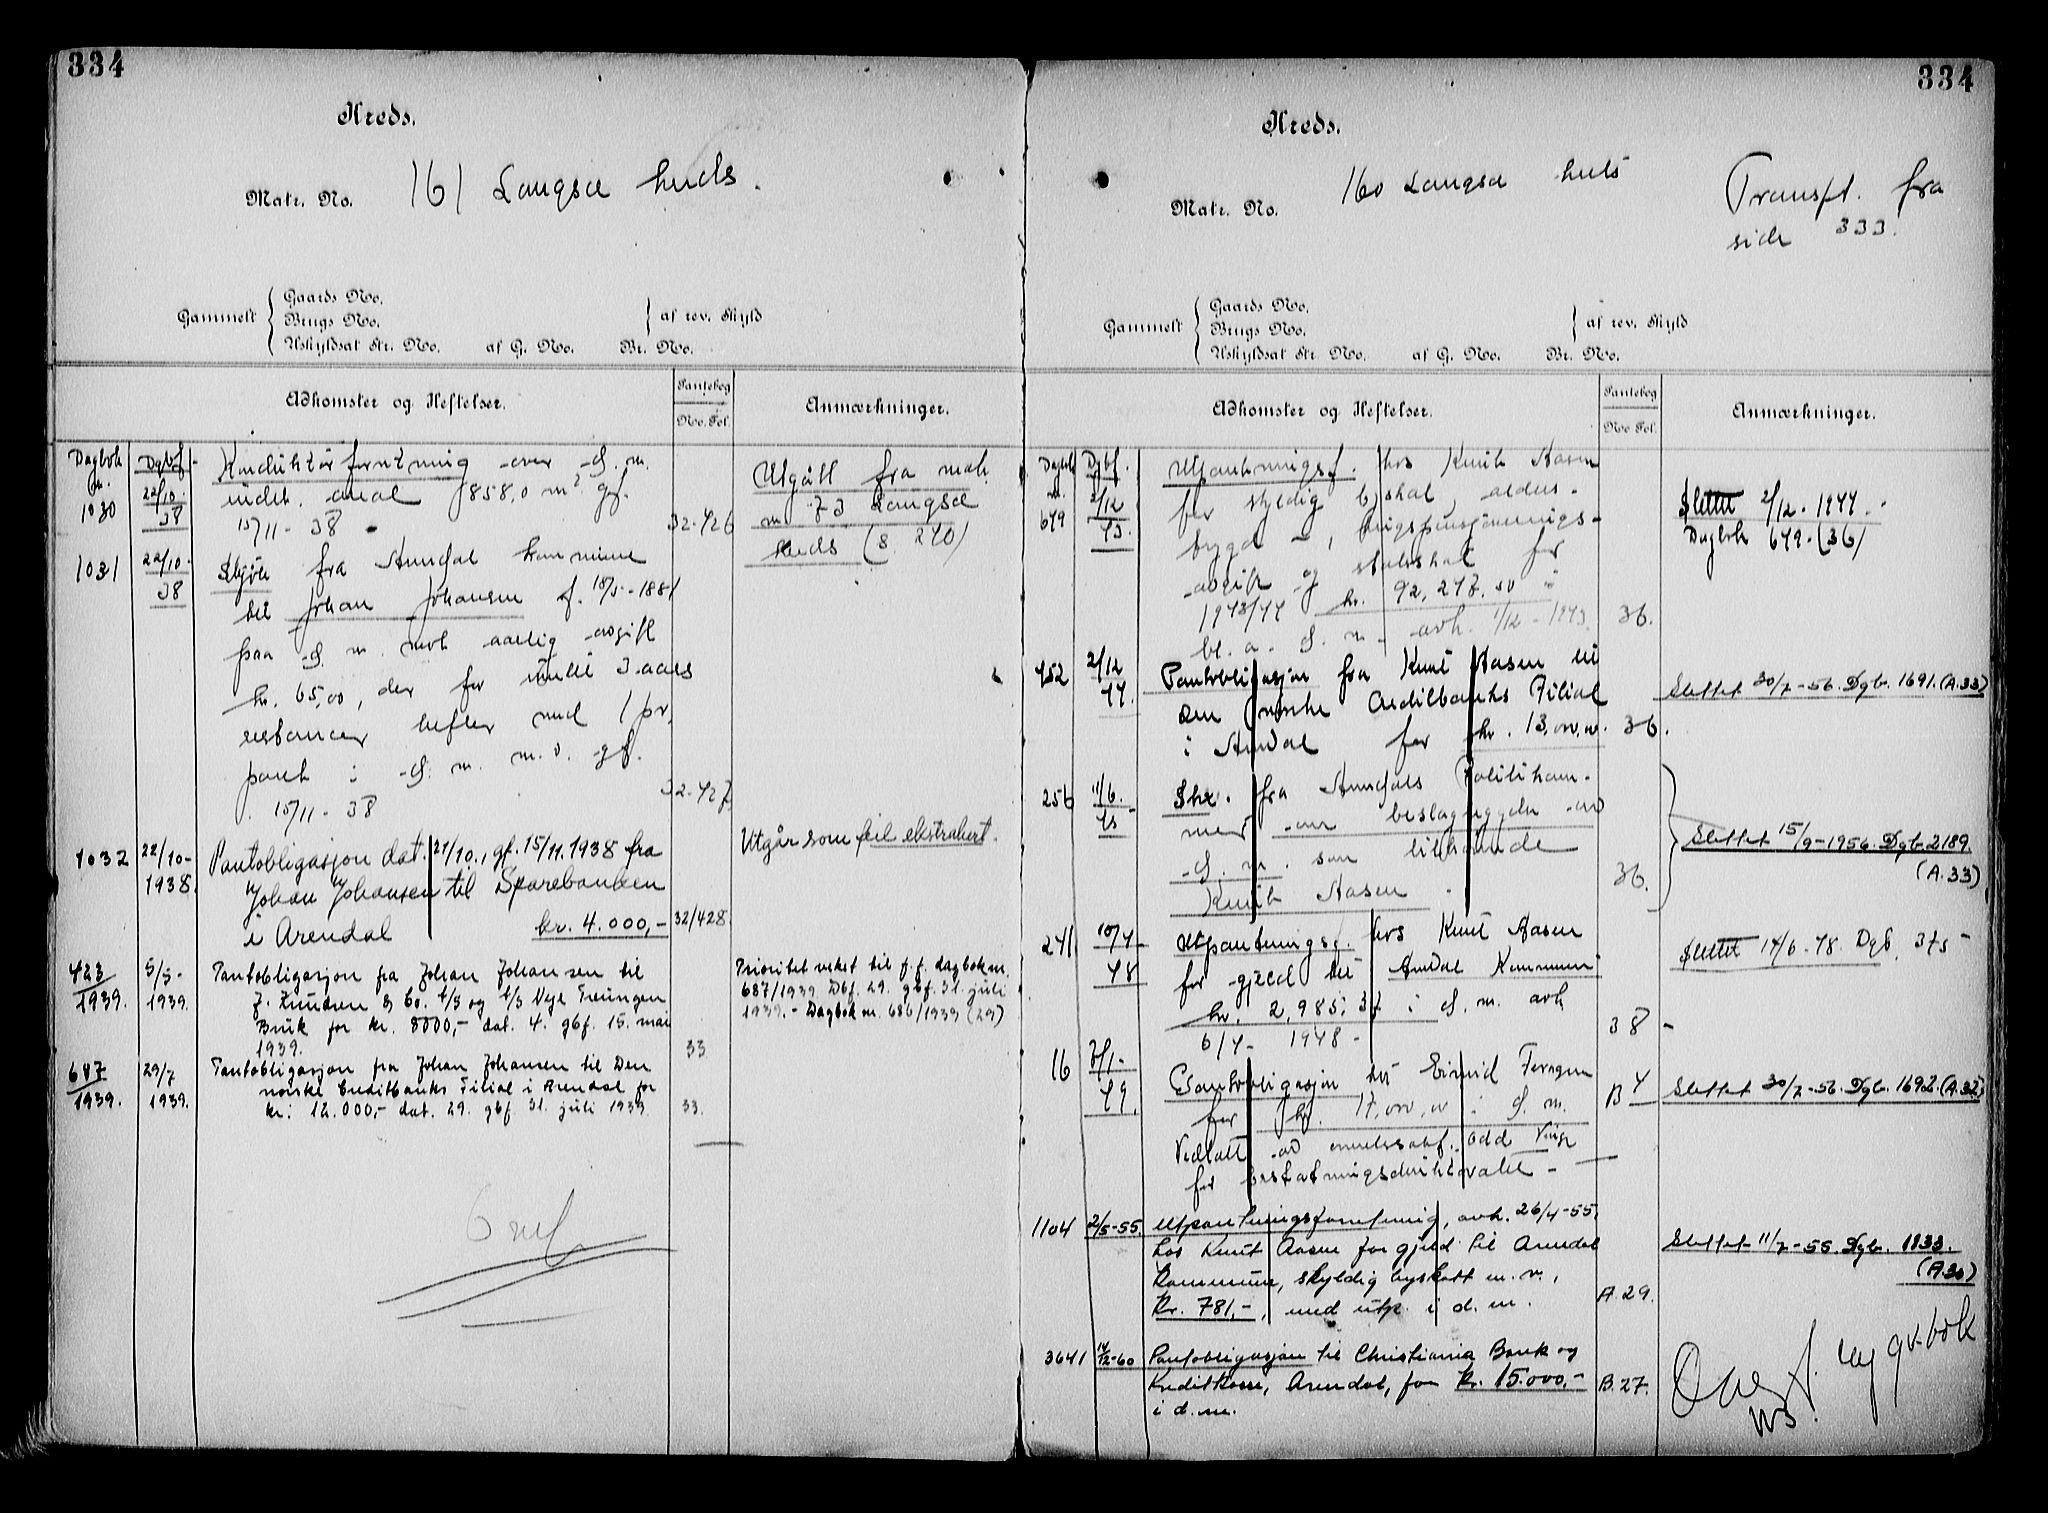 334
Kreds.
Matr. No. 161 Langsæ huds.
Gammelt
Gaards No.
Brugs No.
Uskyldsat Str. No. af G. No. Br. No.
af rev. Skyld
Adkomster og Heftelser.
Pantebog
No. Fol.
Anmærkninger.
Dagbok nr. Dgbf.
1030 22/10-38 Konduktørforretning over d. m.
indet. areal 858,0 m² gf.
15/11-38 32-426
Utgått fra matr.
nr. 73 Langsæ
huds (s. 240)
1031 22/10-38 Skjøte fra Arendal kommune
til Johan Johansen f. 10/5-1881
paa d. m. mot aarlig avgift
kr. 65,00, der for inntil 3 aars
restancer hefter med 1 pr.
pant i d. m. m. v. gf.
15/11-38 32-427
1032 22/10-1938. Pantobligasjon dat. 21/10., gf. 15/11.1938 fra
Johan Johansen til Sparebanken
i Arendal kr. 4.000,- 32/428.
Utgår som feil ekstrahert.
423/1939. 5/5-1939. Pantobligasjon fra Johan Johansen til
J. Knudsen & Co. A/S og A/S Vegl Treungen
Bruk for kr. 8000,- dat. 4. gbf. 15. mai
1939. 33
Prioritet veket til f. f. dagbok nr.
687/1939 Dbf. 29. gbf. 31. juli
1939. - Dagbok nr. 686/1939 (29)
687/1939. 29/7 1939. Pantobligasjon fra Johan Johansen til Den
norske Creditbanks Filial i Arendal for
kr: 12.000,- dat. 29. gbf 31. juli 1939 33.
334
Kreds.
Matr. No. 160 Langsæ huds
Transp. fra
side 333.
Gammelt
Gaards No.
Brugs No.
Uskyldsat Str. No. af G. No. Br. No.
af rev. Skyld
Adkomster og Heftelser.
Pantebog
No Fol.
Anmærkninger.
Dagbok nr. Dbf.
649 2/12 43. Utpantningsf. hos Knut Aasen
for skyldig byskat, alders-
trygd -,
avgift og statsskat for
1943/44 kr. 92,247.50
bl. a. d. m. avh. 1/12-1943. 36.
Slettet 2/12.1944.
Dagbok 649-(36)
452 2/12 44. Pantobligasjon fra Knut Aasen til
Den norske Creditbanks Filial
i Arendal for kr. 13.000,00. 36.
Slettet 30/7-56. Dgb. 1691. (A.33)
256 11/6. 45 Skr. fra Arendals Politikam-
mer om beslagleggelse av
d. m. som tilhørende
Knut Aasen 36.
Slettet 15/9-1956. Dgb. 2189.
(A.33)
241 10/4-48 Utpantningsf. hos Knut Aasen
for gjeld til Arendal Kommune
kr. 2,985,37 i d. m. avh
6/4-1948- 38-
Slettet 14/6-48. Dgb. 375
16 7/1-49. Pantobligasjon til Eivind Ferngren
for kr. 17.000,00 i d. m.
Vedtatt av Odd Vinge
for B 4
Slettet 30/7-56. Dgb. 1692. (A.33)
1104 2/5-55. Utpantningsforretning, avh. 26/4-55.
hos Knut Aasen for gjeld til Arendal
Kommune, skyldig byskatt m. v.,
kr. 781,-, med utp. i d. m. A.29.
Slettet 11/7-55. Dgb. 1833.
(A.30)
3641 14/12-60 Pantobligasjon til Christiania Bank og
Kreditkasse, Arendal, for kr. 15.000,- B.27.
i d. m.
Overf. ny gr.bok